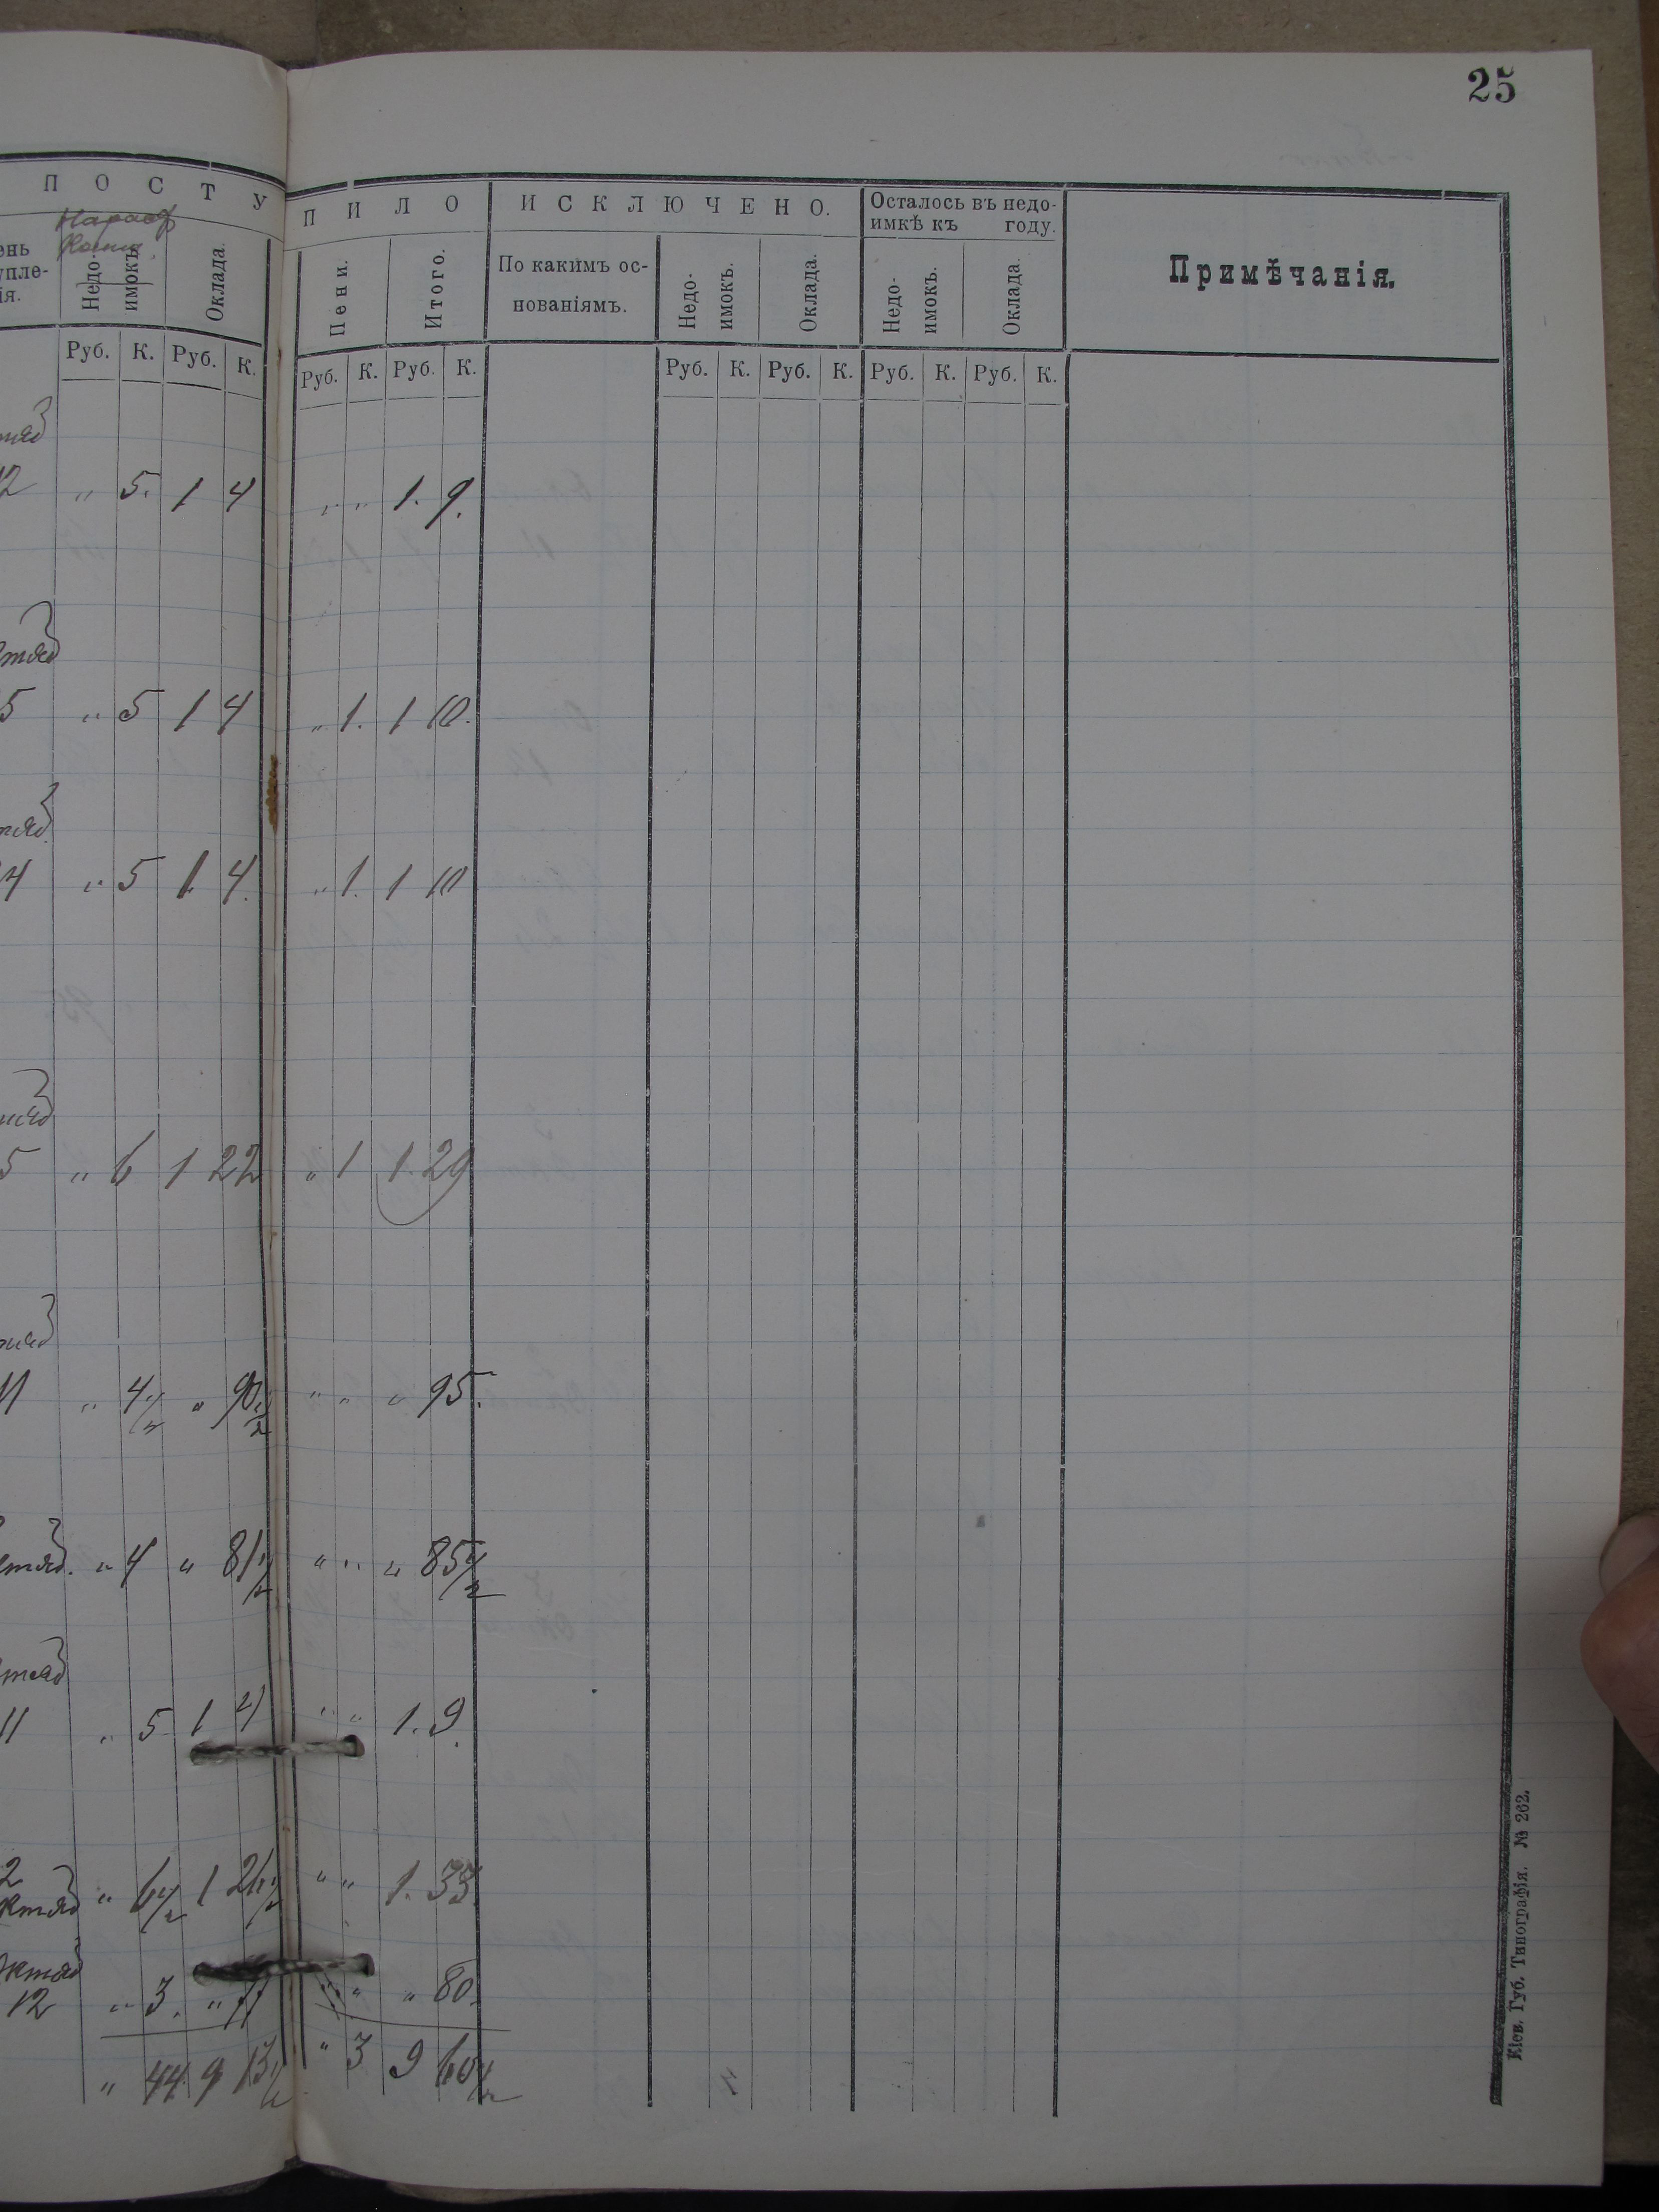 25
П О С Т У П И Л О
И С К Л Ю Ч Е Н О.
Осталось въ недо-
имкѣ къ году.
Примѣчанія.
ень
упле-
ія.
Недо-
имокъ.
Оклада.
Пени.
Итого.
По какимъ ос-
нованіямъ.
Недо-
имокъ.
Оклада.
Недо-
имокъ.
Оклада.
Руб. К. Руб. К. Руб. К. Руб. К. Руб. К. Руб. К. Руб. К. Руб. К.
12 " 5. 1 4 " " 1. 9.
5 " 5 1 4 " 1. 1 10.
4 " 5 1. 4. " 1. 1 10
5 " 6 1 22 " 1 1. 29
11 " 4 1/2 " 90 1/2 " " " 95.
" 4 " 81 1/2 " " " 85 1/2
11 " 5 1 4 " " 1. 9.
2
" 6 1/2 1 26 1/2 " " 1. 33.
12 " 3. " 77 " " " 80.
" 44 9 13 1/2 " 3 9 60 1/2
Кіев. Губ. Типографія. № 262.